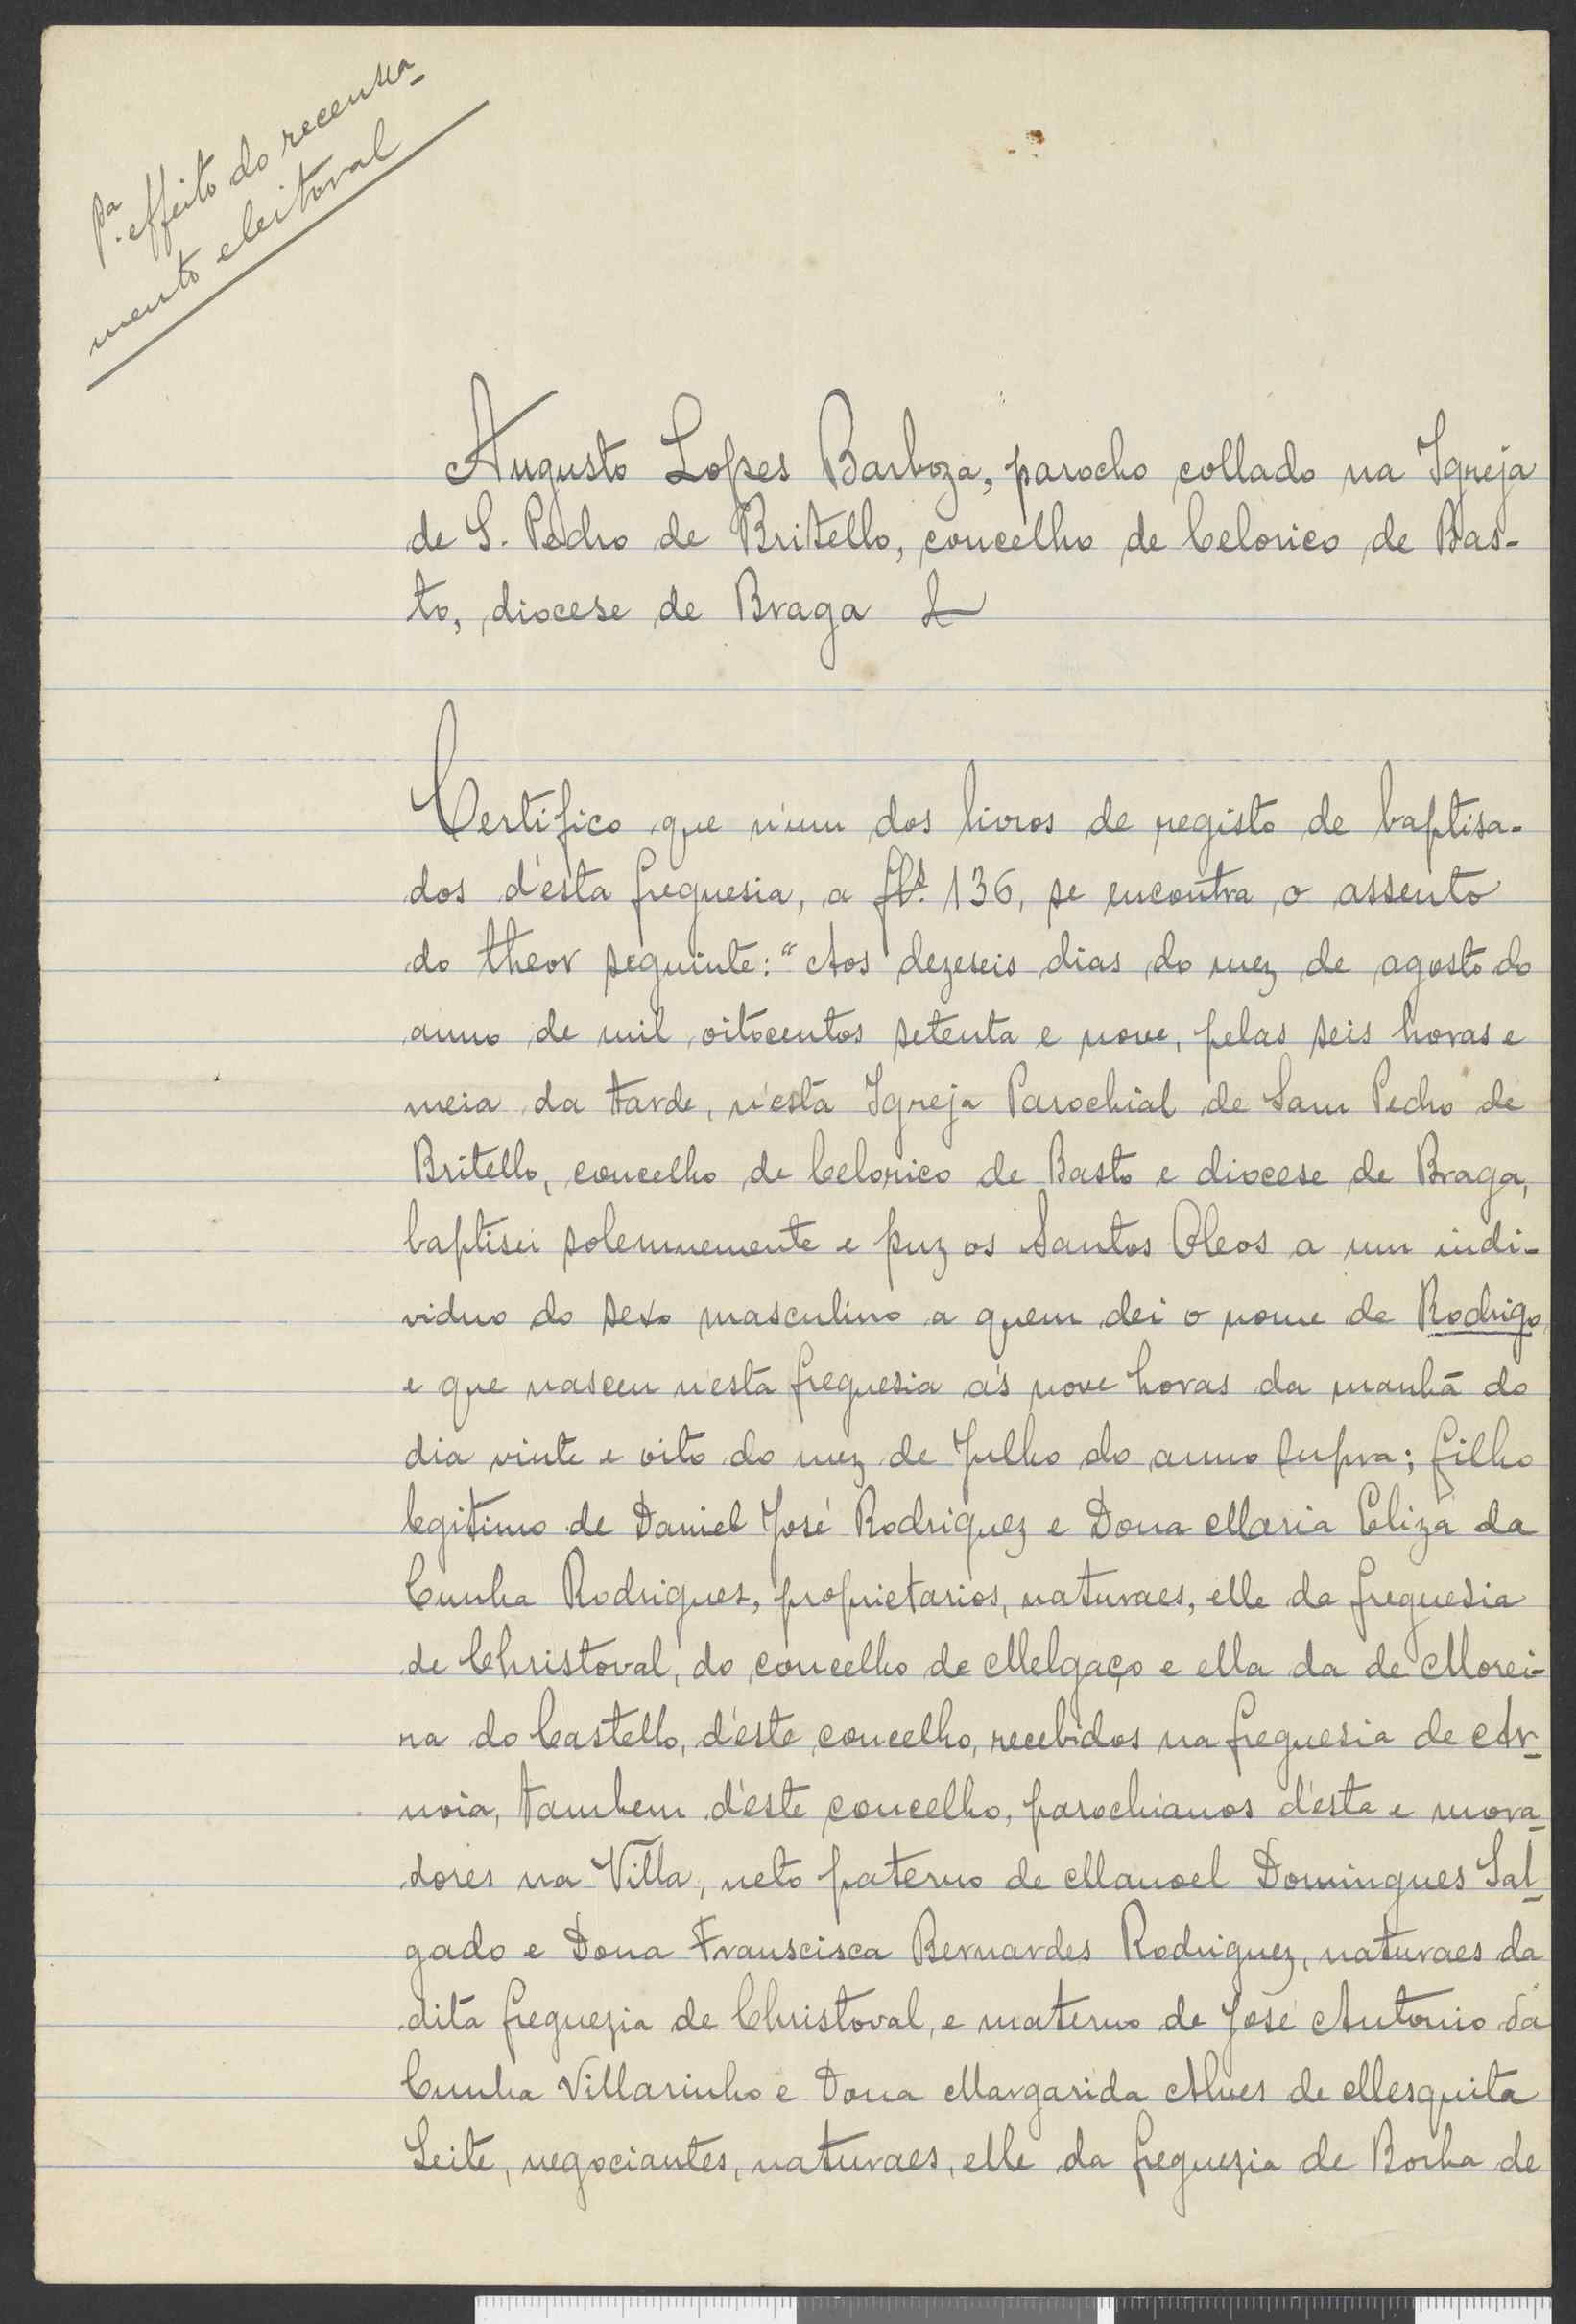 pa. effeito do recensea-
mento eleitoral
Augusto Lopes Barboza, parocho collado na Igreja
de S. Pedro de Britello, concelho de Celorico de Bas-
to, diocese de Braga
Certifico que n'um dos livros de registo de baptisa-
dos d'esta freguesia, a fls. 136, se encontra o assento
do theor seguinte: "Aos dezeseis dias do mez de agosto do
anno de mil oitocentos setenta e nove, pelas seis horas e
meia da tarde, n'esta Igreja Parochial de Sam Pedro de
Britello, concelho de Celorico de Basto e diocese de Braga,
baptisei solemnemente e puz os Santos Oleos a um indi-
viduo do sexo masculino a quem dei o nome de Rodrigo
e que nasceu n'esta freguesia ás nove horas da manhã do
dia vinte e oito do mez de Julho do anno supra; filho
legitimo de Daniel José Rodriguez e Dona Maria Eliza da
Cunha Rodriguez, proprietarios, naturaes, elle da freguesia
de Christoval, do concelho de Melgaço e ella da de Morei-
ra do Castello, d'este concelho, recebidos na freguesia de Ar-
noia, tambem d'este concelho, parochianos d'esta e mora-
dores na Villa, neto paterno de Manoel Domingues Sal-
gado e Dona Franscisca Bernardes Rodriguez, naturaes da
dita freguezia de Christoval, e materno de José Antonio da
Cunha Villarinho e Dona Margarida Alves de Mesquita
Leite, negociantes, naturaes, elle da freguezia de Borba de